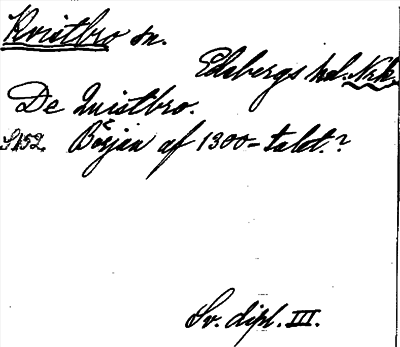 Kvistbro sn.
Edsbergs hd. Nrk.
De Quistbro.
S. 152. Början af 1300-talet.?
Sv. dipl. III.